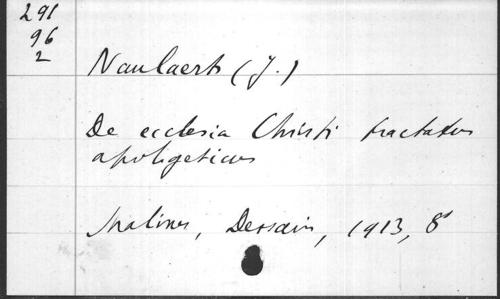 291
96
2
Naulaerts (J.)
De ecclesia Christi tractatus
apologeticus
Malines, Dessain, 1913, 8°